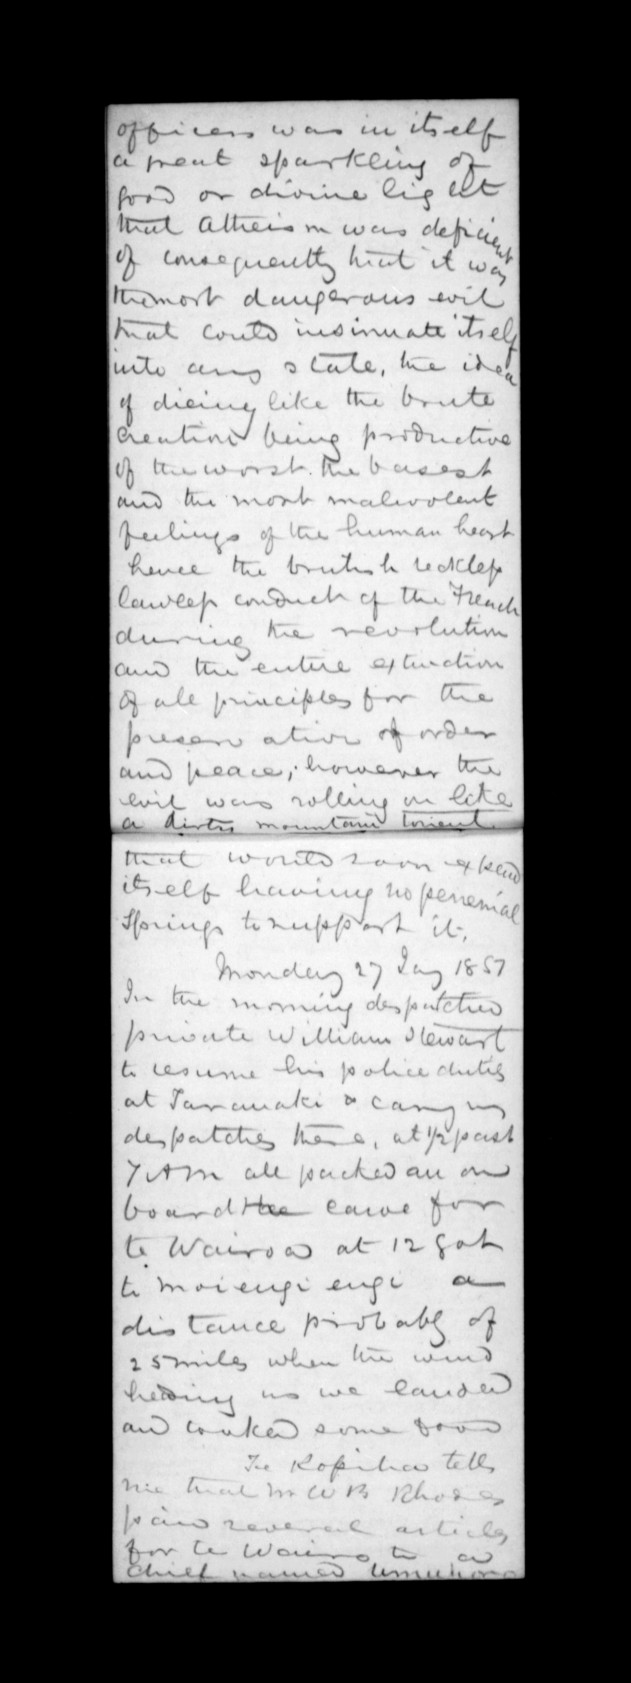 officers was in itself
a great sparkling of
good or divine light
that Atheism was deficient
of consequently that it was
the most dangerous evil
that could insinuate itself
into any state, the idea
of dieing like the brute
creation being productive
of the worst. the basest
and the most malevolent
feelings of the human heart
hence the brutish reckless
lawless conduct of the French
during the revolution
and the entire extinction
of all principles for the
preservation of order
and peace; however the
evil was rolling on like
a dirty mountain torrent
that would soon expend
itself having no perennial
Springs to support it.
Monday 27 Jay 1851
In the morning despatched
private William Stewart
to resume his police duties
at Taranaki & carry my
despatches there, at 1/2 past
7 AM all packed au on
board the canoe for
te Wairoa at 12 got
to moiengi engi a
distance probably of
25 miles when the wind
heading us we landed
and cooked some food
Te Kopihia tells
me that Mr W B Rhodes
paid several articles
for te Wairoa to a
chief named